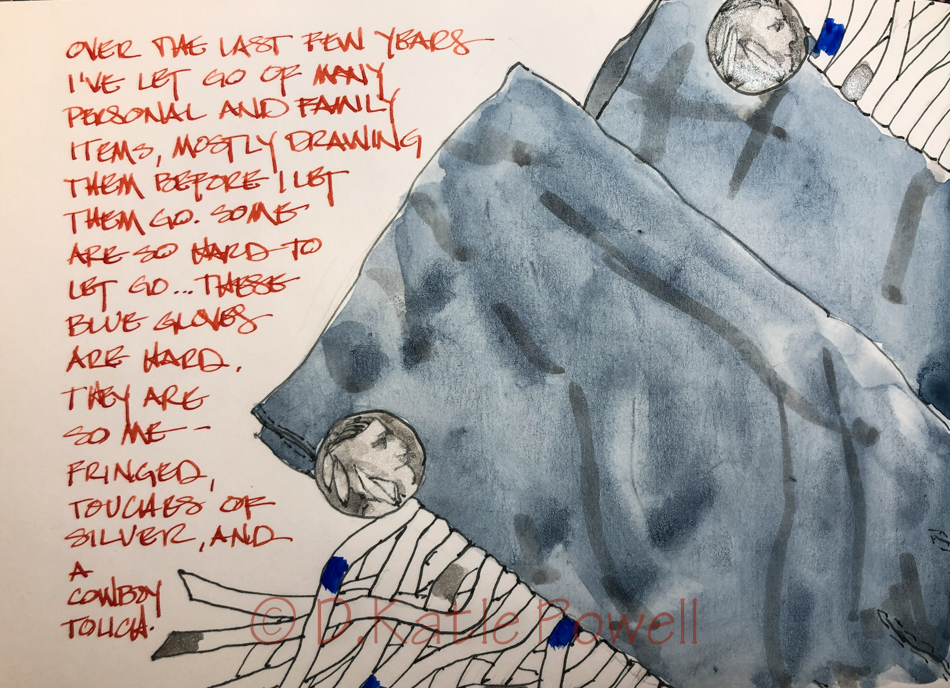 OVER THE LAST FEW YEARS
I'VE LET GO OF MANY
PERSONAL AND FAMILY
ITEMS, MOSTLY DRAWING
THEM BEFORE I LET
THEM GO. SOME
ARE SO HARD TO
LET GO... THESE
BLUE GLOVES
ARE HARD.
THEY ARE
SO ME -
FRINGED,
TOUCHES OF
SILVER, AND
A
COWBOY
TOUCH.
© D.Katie Powell